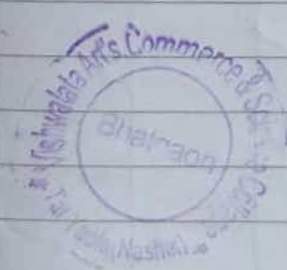 Vishwalata Art's Commerce & Science College
Bhatgaon
Tal. Yeola (Nashik)